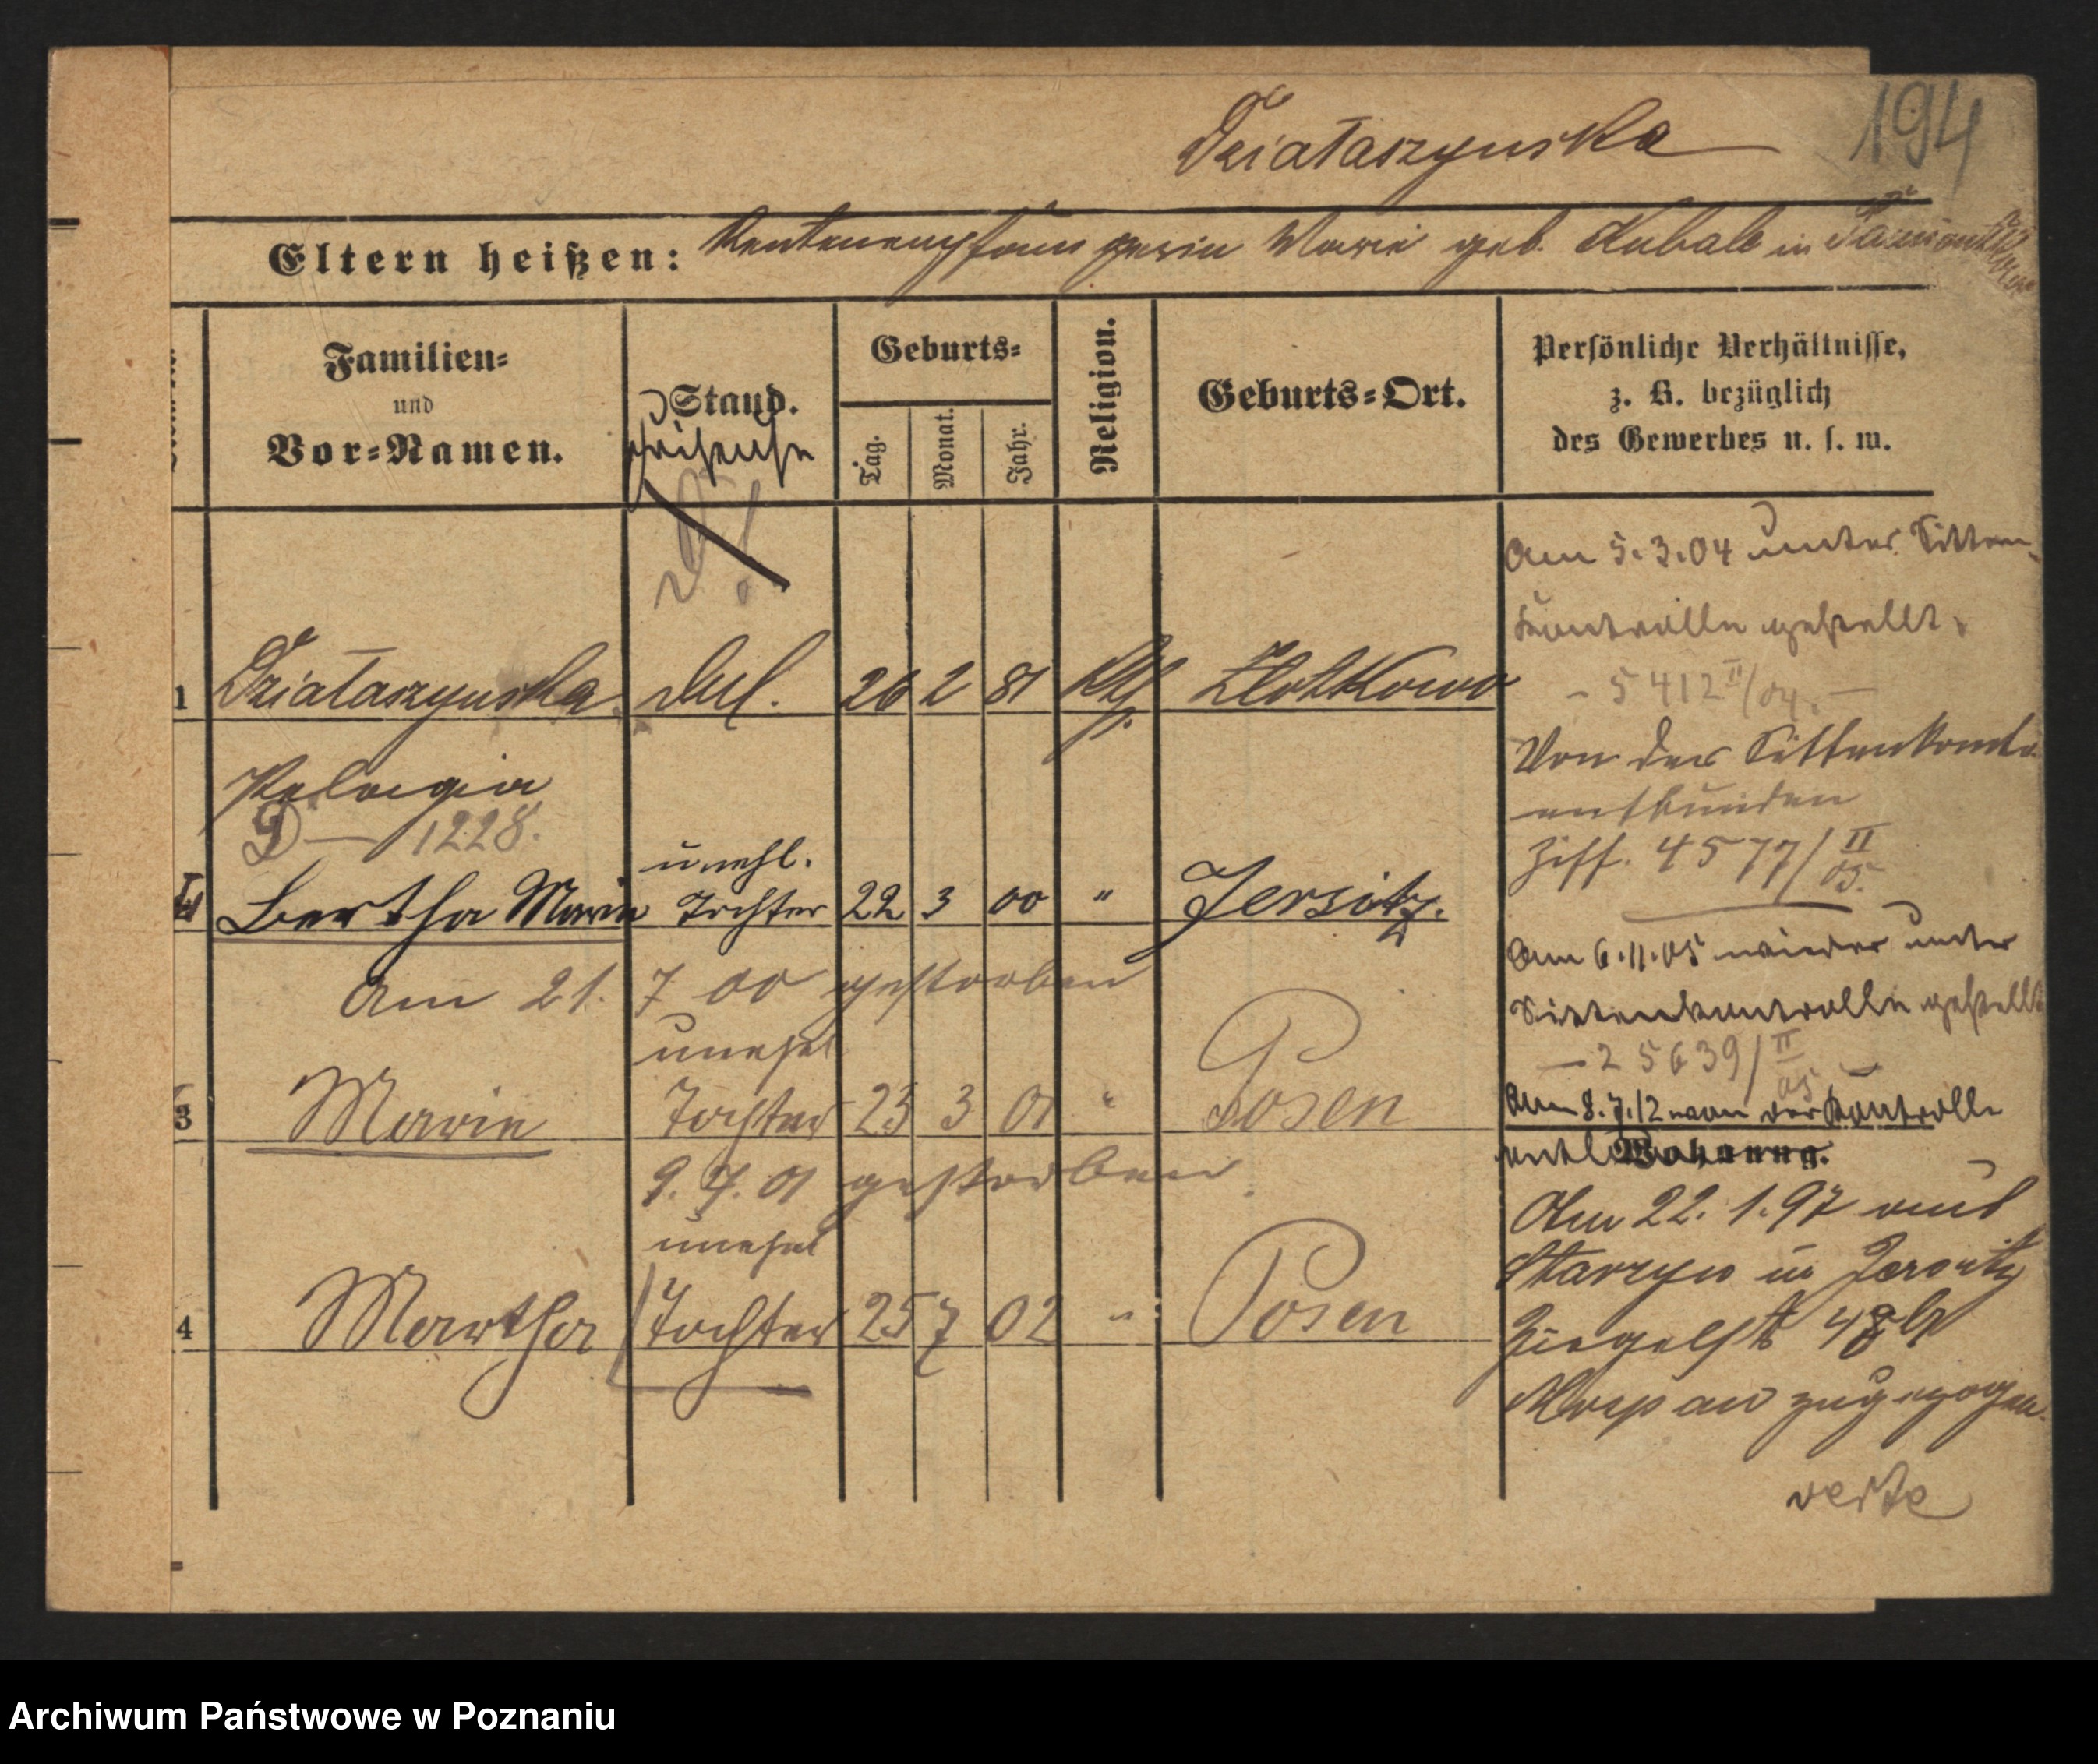 194
Działaszynska
Eltern heißen: Rentenempfängerin Marie geb. Kubale in
Familien- und Vor-Namen.
Stand.
Geburts-
Tag. Monat. Jahr.
Religion.
Geburts-Ort.
Persönliche Verhältnisse,
z. B. bezüglich
des Gewerbes u. s. w.
1 Działaszynska led. 26 2 81 kth Zlotkowo
Pelagia
D— 1228.
unehl.
Bertha Marie Tochter 22 3 00 " Jersitz.
Am 21. 7 00 gestorben
unehel
3 Marie Tochter 23 3 01 " Posen
9. 7. 01 gestorben
unehel
4 Martha Tochter 25 7 02 " Posen
Am 5.3.04 unter Sitten-
kontrolle gestellt.
- 5412 II/04. -
Von der Sittenkontr.
entbunden
Ziff. 4577/II 05.
Am 6.11.05 wieder unter
Sittenkontrolle gestellt
- 25639/II 05 -
Am 8.7.12 von der Kontrolle
entl
Wohnung.
Am 22. 1. 97 von
in Jersitz
zugezogen
verte
Archiwum Państwowe w Poznaniu